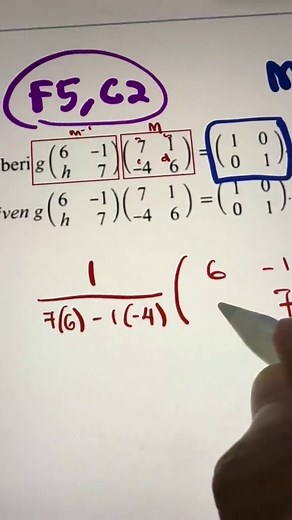 F5, C2
M
m⁻¹ M
beri g(6 -1 h 7)(7 1 -4 6) = (1 0 0 1)
c d
iven g(6 -1 h 7)(7 1 -4 6) = (1 0 0 1).
1/(7(6) - 1(-4)) (6 -1
7